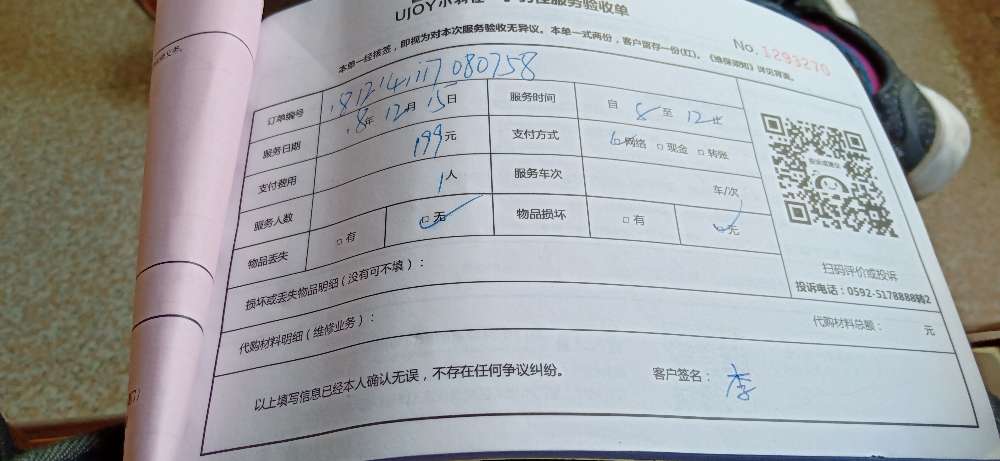 UJOY
服务验收单
本单一经核签，即视为对本次服务验收无异议。本单一式两份，客户留存一份(红)。《维保须知》详见背面。
No. 1293270
订单编号 1812141117080758
服务日期 18年12月15日 服务时间 自 8 至 12止
支付费用 199元 支付方式 网络 □现金 □转账
服务人数 1人 服务车次 车/次
物品丢失 □有 □无 物品损坏 □有 □无
损坏或丢失物品明细（没有可不填）：
代购材料明细（维修业务）： 代购材料总额： 元
以上填写信息已经本人确认无误，不存在任何争议纠纷。 客户签名： 李
扫码评价或投诉
投诉电话：0592-5178888转2